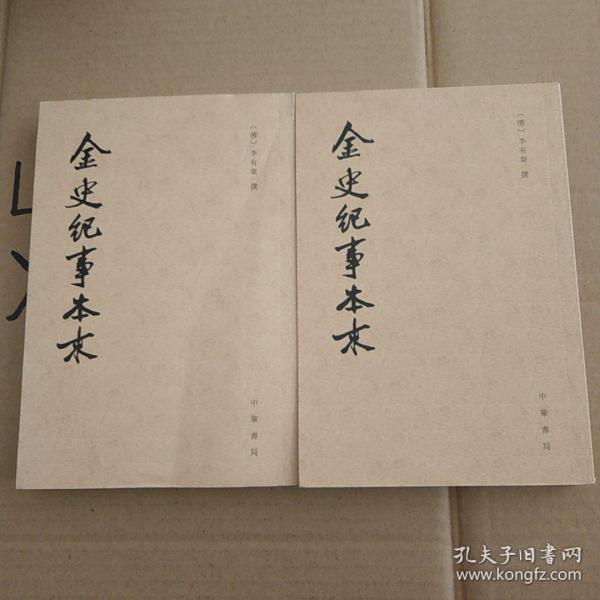 金史纪事本末
〔清〕李有棠 撰
中華書局
金史纪事本末
〔清〕李有棠 撰
中華書局
孔夫子旧书网
www.kongfz.com